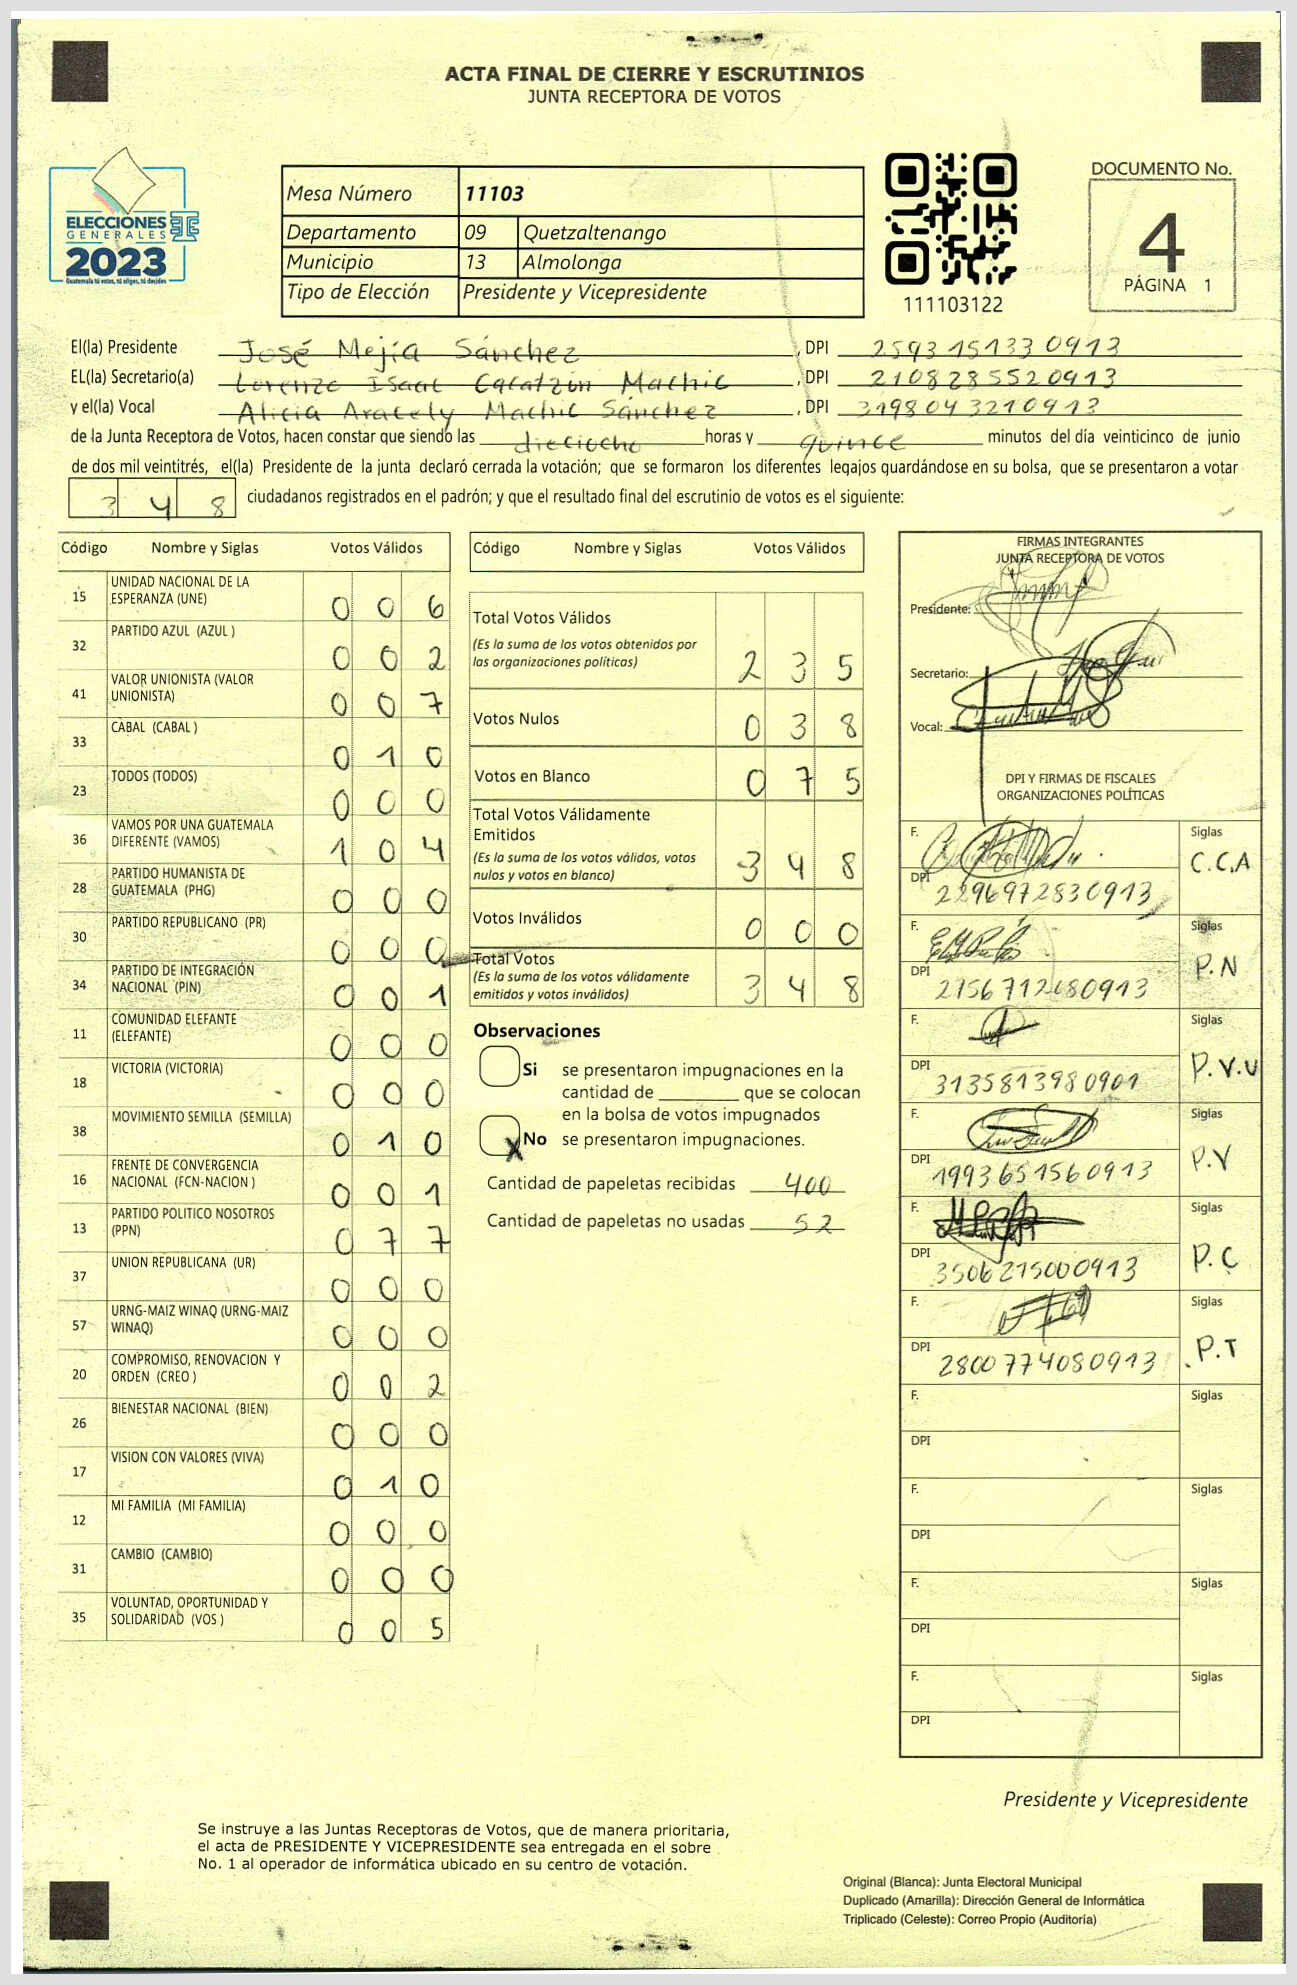 ACTA FINAL DE CIERRE Y ESCRUTINIOS
JUNTA RECEPTORA DE VOTOS
ELECCIONES
GENERALES
2023
Guatemala tú votas, tú eliges, tú decides
Mesa Número 11103
Departamento 09 Quetzaltenango
Municipio 13 Almolonga
Tipo de Elección Presidente y Vicepresidente
111103122
DOCUMENTO No.
4
PÁGINA 1
El(la) Presidente José Mejía Sánchez, DPI 2593151330913
EL(la) Secretario(a) Lorenzo Isaac Cacatzún Machic, DPI 2108285520913
y el(la) Vocal Alicia Aracely Machic Sánchez, DPI 3198043210913
de la Junta Receptora de Votos, hacen constar que siendo las dieciocho horas y quince minutos del día veinticinco de junio
de dos mil veintitrés, el(la) Presidente de la junta declaró cerrada la votación; que se formaron los diferentes legajos guardándose en su bolsa, que se presentaron a votar
3 4 8 ciudadanos registrados en el padrón; y que el resultado final del escrutinio de votos es el siguiente:
Código Nombre y Siglas Votos Válidos
15 UNIDAD NACIONAL DE LA ESPERANZA (UNE) 0 0 6
32 PARTIDO AZUL (AZUL ) 0 0 2
41 VALOR UNIONISTA (VALOR UNIONISTA) 0 0 7
33 CABAL (CABAL ) 0 1 0
23 TODOS (TODOS) 0 0 0
36 VAMOS POR UNA GUATEMALA DIFERENTE (VAMOS) 1 0 4
28 PARTIDO HUMANISTA DE GUATEMALA (PHG) 0 0 0
30 PARTIDO REPUBLICANO (PR) 0 0 0
34 PARTIDO DE INTEGRACIÓN NACIONAL (PIN) 0 0 1
11 COMUNIDAD ELEFANTE (ELEFANTE) 0 0 0
18 VICTORIA (VICTORIA) 0 0 0
38 MOVIMIENTO SEMILLA (SEMILLA) 0 1 0
16 FRENTE DE CONVERGENCIA NACIONAL (FCN-NACION ) 0 0 1
13 PARTIDO POLITICO NOSOTROS (PPN) 0 7 7
37 UNION REPUBLICANA (UR) 0 0 0
57 URNG-MAIZ WINAQ (URNG-MAIZ WINAQ) 0 0 0
20 COMPROMISO, RENOVACION Y ORDEN (CREO ) 0 0 2
26 BIENESTAR NACIONAL (BIEN) 0 0 0
17 VISION CON VALORES (VIVA) 0 1 0
12 MI FAMILIA (MI FAMILIA) 0 0 0
31 CAMBIO (CAMBIO) 0 0 0
35 VOLUNTAD, OPORTUNIDAD Y SOLIDARIDAD (VOS ) 0 0 5
Código Nombre y Siglas Votos Válidos
Total Votos Válidos
(Es la suma de los votos obtenidos por
las organizaciones políticas) 2 3 5
Votos Nulos 0 3 8
Votos en Blanco 0 7 5
Total Votos Válidamente
Emitidos
(Es la suma de los votos válidos, votos
nulos y votos en blanco) 3 4 8
Votos Inválidos 0 0 0
Total Votos
(Es la suma de los votos válidamente
emitidos y votos inválidos) 3 4 8
Observaciones
Si se presentaron impugnaciones en la
cantidad de ________ que se colocan
en la bolsa de votos impugnados
X No se presentaron impugnaciones.
Cantidad de papeletas recibidas 400
Cantidad de papeletas no usadas 52
FIRMAS INTEGRANTES
JUNTA RECEPTORA DE VOTOS
Presidente:
Secretario:
Vocal:
DPI Y FIRMAS DE FISCALES
ORGANIZACIONES POLÍTICAS
F. Siglas
C.C.A
DPI 2296972830913
F. Siglas
P.N
DPI 2756712680913
F. Siglas
P.V.U
DPI 3135813980901
F. Siglas
P.V
DPI 1993651560913
F. Siglas
P.C
DPI 3506215000913
F. Siglas
P.T
DPI 2800774080913
F. Siglas
DPI
F. Siglas
DPI
F. Siglas
DPI
F. Siglas
DPI
Presidente y Vicepresidente
Se instruye a las Juntas Receptoras de Votos, que de manera prioritaria,
el acta de PRESIDENTE Y VICEPRESIDENTE sea entregada en el sobre
No. 1 al operador de informática ubicado en su centro de votación.
Original (Blanca): Junta Electoral Municipal
Duplicado (Amarilla): Dirección General de Informática
Triplicado (Celeste): Correo Propio (Auditoría)